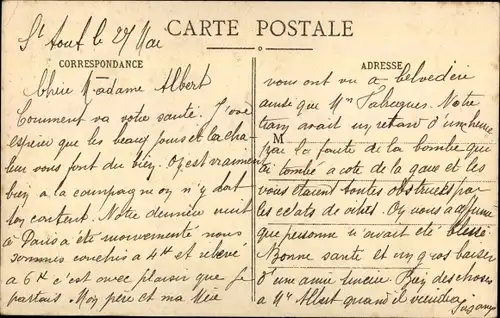 St Aout le 27 Mai
CARTE POSTALE
CORRESPONDANCE
ADRESSE
Chère Madame Albert
Comment va votre santé. J'ose
espérer que les beaux jours et la cha
leur vous font du bien. Oy est vraiment
bien a la campagne on n'y doit
Notre dernière nuit
a Paris a été mouvementé nous
sommes couchés a 4h et relevé
a 6h c'est avec plaisir que je
partais. Mon père et ma Mère
vous ont vu a belvédère
ainsi que Mr Fabregues. Notre
train avait un retard d'une heure
M
par la faute de la bombe qui
a tombé a coté de la gare et les
voies étaient toutes obstrués par
les eclats de vitres. Oy vous a affirmé
que personne n'avait été blessé
Bonne santé et un gros baiser
d'une amie sincère. Bien des choses
a Mr Albert quand il viendra
Suzanne